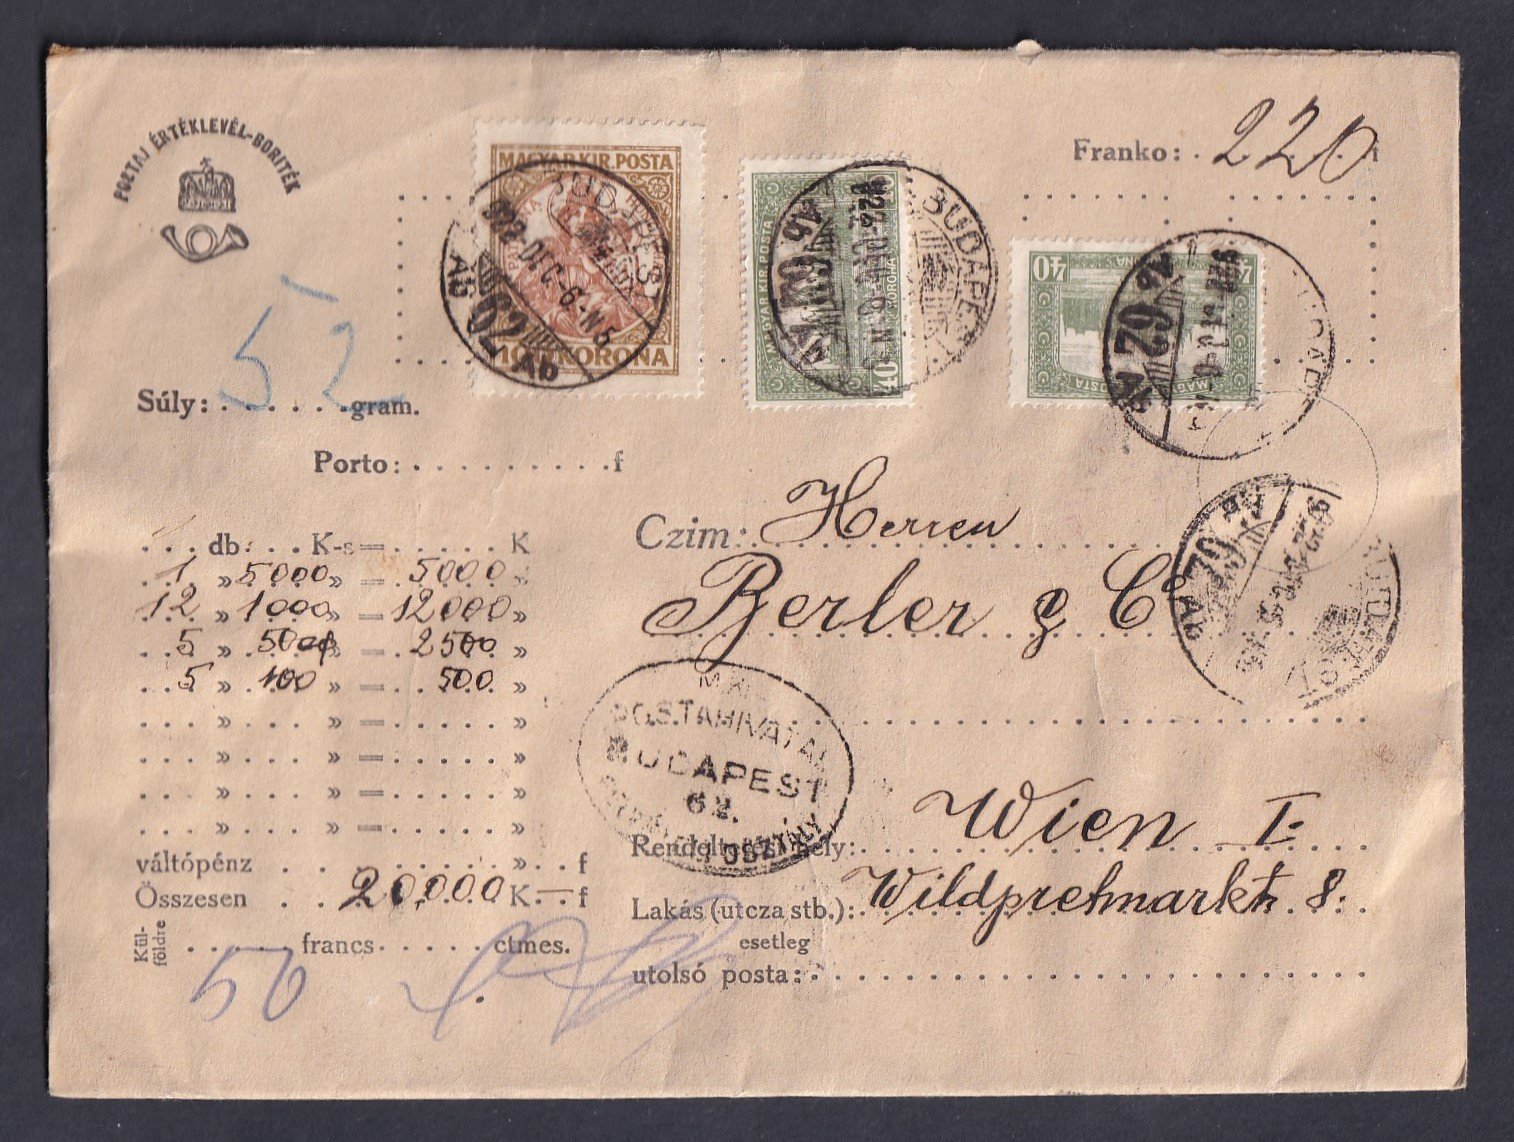 POSTAI ÉRTÉKLEVÉL-BORITÉK
Franko: 220 f
MAGYAR KIR. POSTA
KORONA
BUDAPEST
922-DEC-6-N5
Ab 62 Ab
MAGYAR KIR. POSTA
40
KORONA
BUDAPEST
62
40
MAGYAR
POSTA
Ab 62
52
Súly: gram.
Porto: f
db K-s = K
1 » 5000 » = 5000 »
12 » 1000 » = 12000 »
5 » 500 » = 2500 »
5 » 100 » = 500 »
» » = »
» » = »
» » = »
» » = »
váltópénz » f
Összesen 20,000 K — f
Külföldre francs ctmes.
50
Czim: Herren
Berler & Co
62
POSTAHIVATAL
BUDAPEST
62.
OSZTÁLY
Rendeltetési hely: Wien I.
Lakás (utcza stb.): Wildpretmarkt 8.
esetleg
utolsó posta: